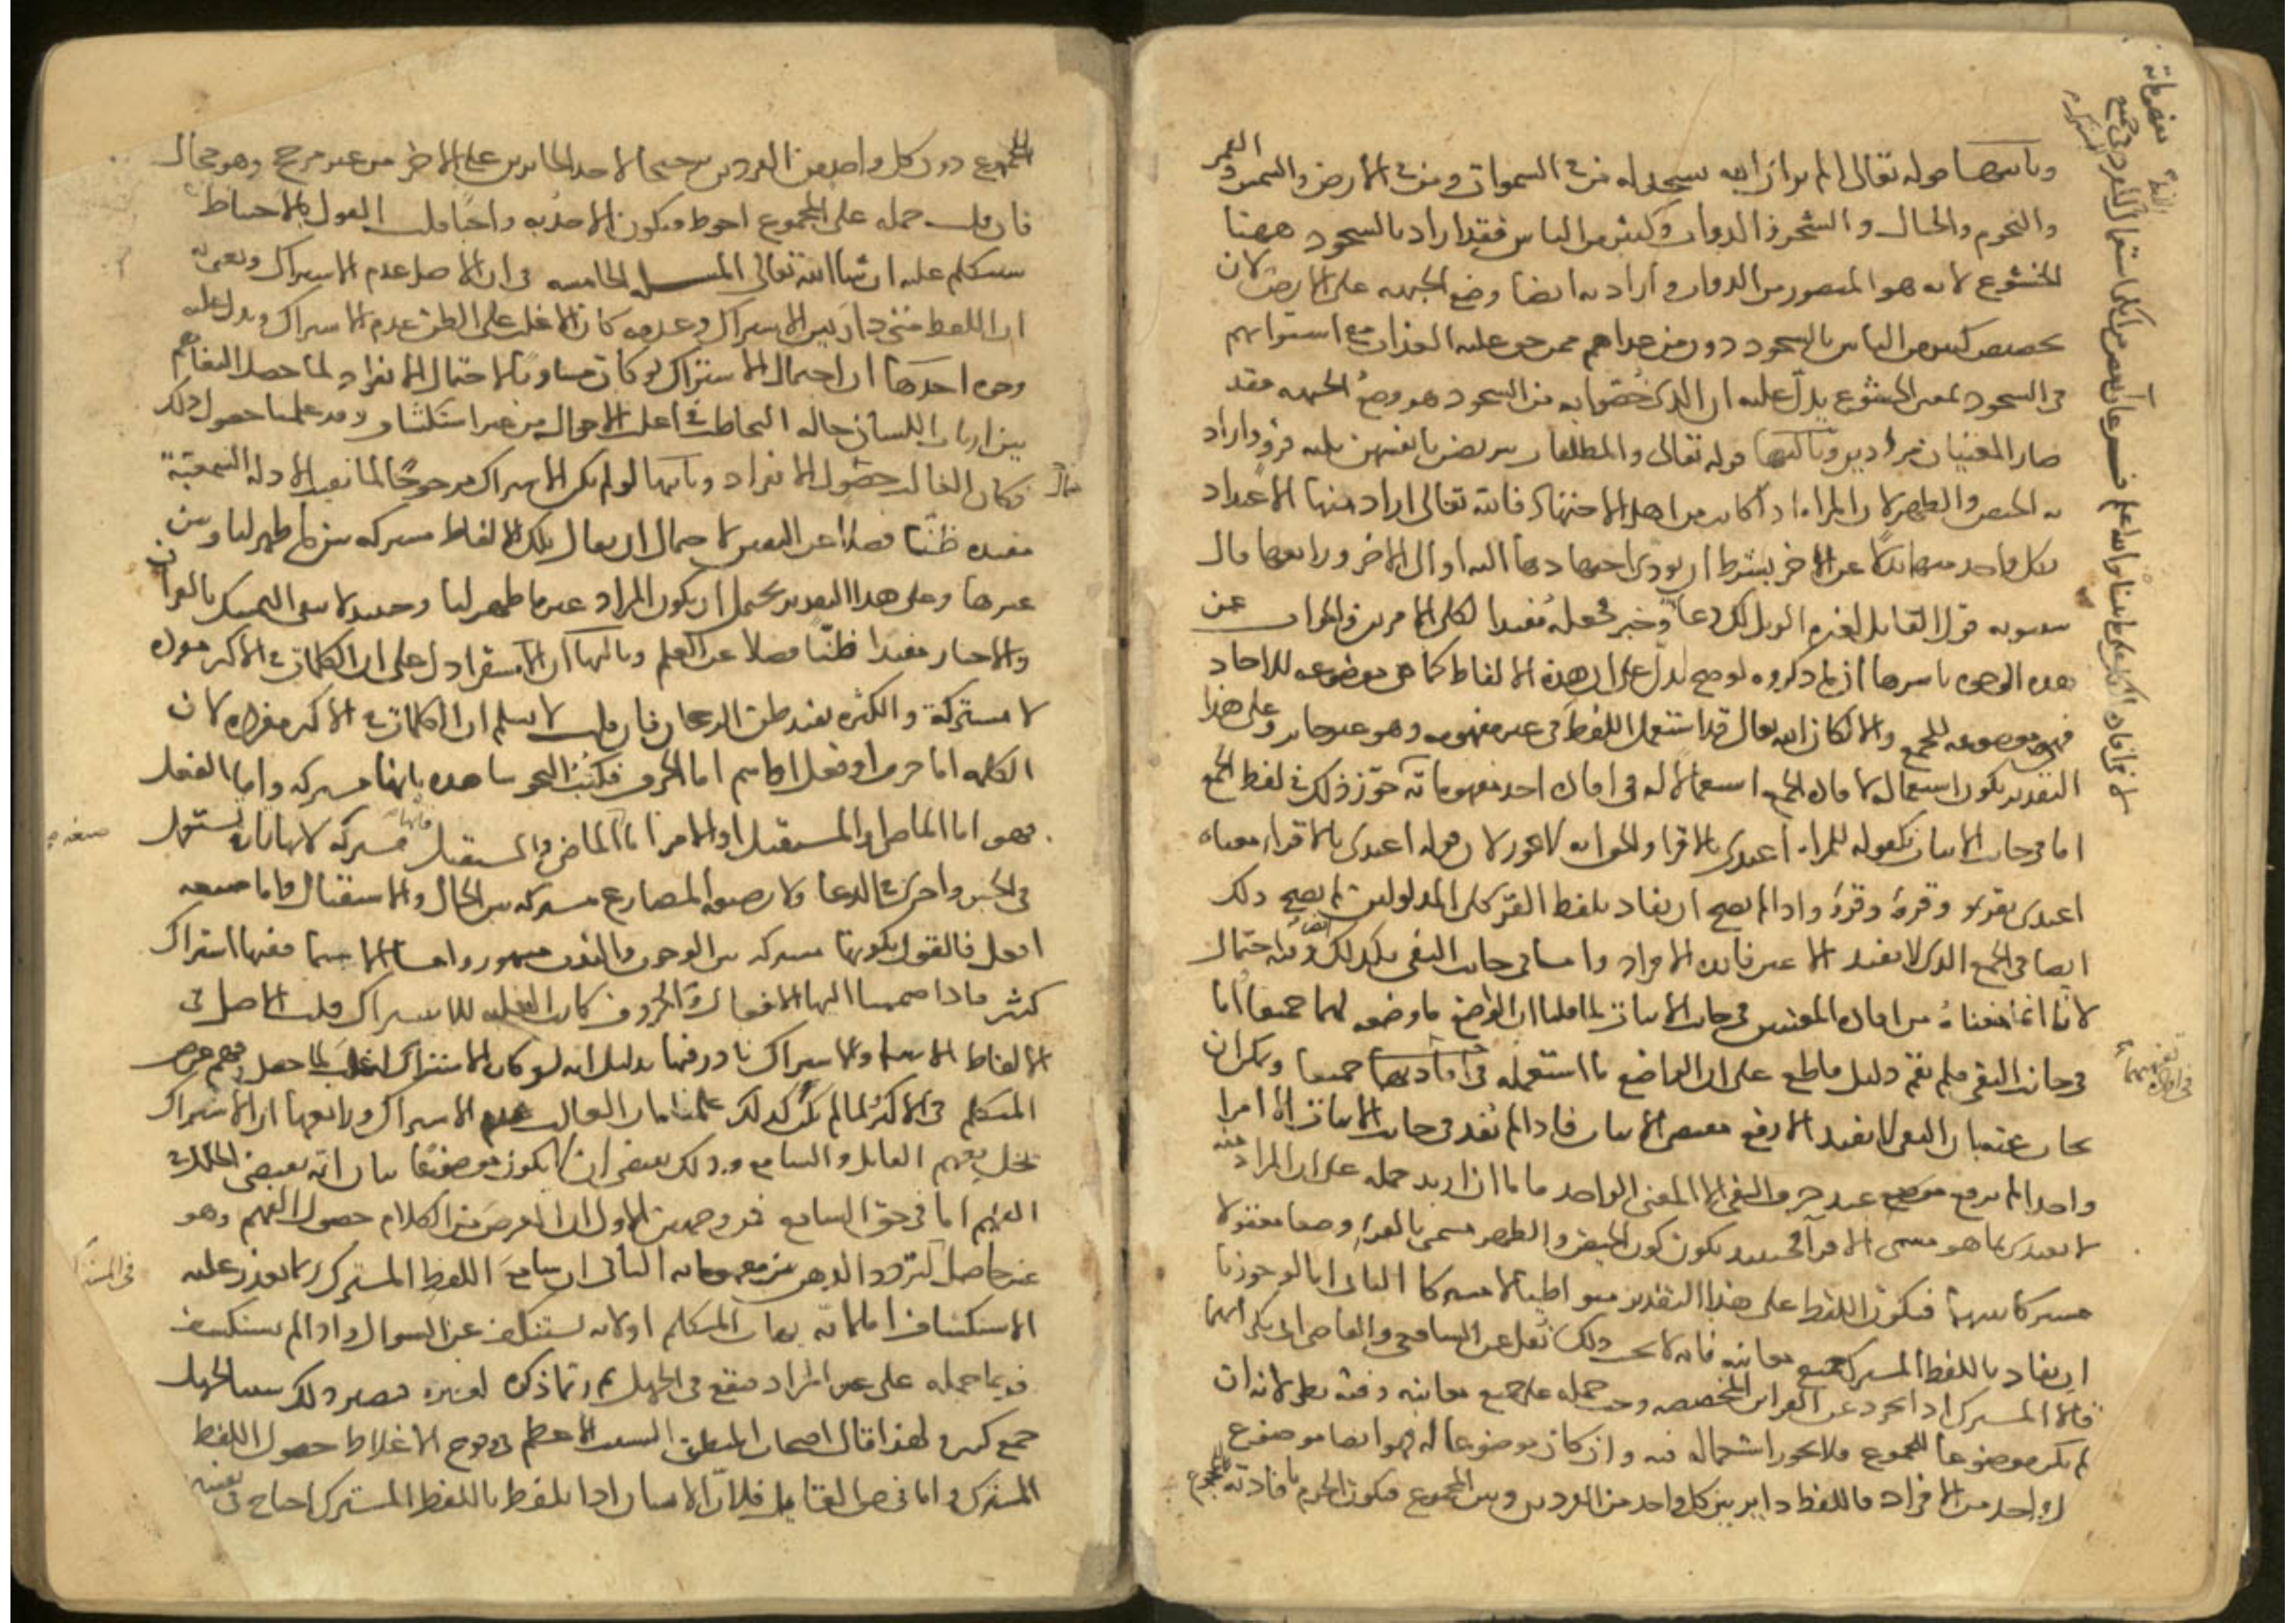 وثانيها قوله تعالى الم تر ان الله يسجد له من في السموات ومن في الأرض والشمس والقمر
والنجوم والجبال والشجر والدواب وكثير من الناس فقد اراد بالسجود ههنا
الخشوع لانه هو المتصور من الدواب واراد به ايضا وضع الجبهة على الارض لان
تخصيص كثير من الناس بالسجود دون من عداهم ممن حق عليه العذاب مع استوائهم
في السجود بمعنى الخشوع يدل على ان الذي خصوا به من السجود هو وضع الجبهة فقد
صار المعنيان مرادين وثالثها قوله تعالى والمطلقات يتربصن بانفسهن ثلثة قروء اراد
به الحيض والطهر لان المراة اذا كانت من اهل الاجتهاد فالله تعالى اراد منها الاعتداد
بكل واحد منهما بدلا عن الاخر بشرط ان يودي اجتهادها اليه او الى الاخر ورابعها قال
سيبويه قول القائل لغيره الويل لك دعا وخبر فجعله مفيدا لكلى الامرين والجواب عن
هذه الوجوه باسرها ان ما ذكروه لو صح لدل على ان هذه الالفاظ كما هي موضوعه للاحاد
فهي موضوعه للجمع والا لكان الله تعالى قد استعمل اللفظ في غير مفهومه وهو غير جائز وعلى هذا
التقدير يكون استعماله لافادة الجمع استعمالا له في افادة احد مفهوماته جوز ذلك في لفظ الجمع
اما في جانب الاثبات كقوله للمراة اعتدي بالاقرا والجواب لا يجوز لان قوله اعتدي بالاقراء معناه
اعتدي بقرء وقرء وقرء واذا لم يصح ان يفاد بلفظ القرء كلى المدلولين لم يصح ذلك
ايضا في الجمع الذي لا يفيد الا عين فائدة الافراد واما في جانب النفي فكذلك ايضا وفيه احتمال
لانا انما منعناه من افادة المعنيين في جانب الاثبات لما قلنا ان الواضع ما وضعه لهما جميعا اما
في جانب النفي فلم يقم دليل قاطع على ان الواضع ما استعمله في افادتهما جميعا ويمكن ان
يجاب عنه بان النفي لا يفيد الا رفع مقتضى الاثبات فاذا لم يفد في جانب الاثبات الا امرا
واحدا لم يرفع عند حرف النفي الا المعنى الواحد فاما ان اريد حمله على ان المراد منه
لا تعتدي بما هو مسمى الاقرا فحينئذ يكون كون الحيض والطهر مسمى بالقرء وصفا معقولا
مشتركا بينهما فيكون اللفظ على هذا التقدير متواطيا لا مشتركا الثاني انا لو جوزنا
ان يفاد باللفظ المشترك جميع معانيه فانه لا يجب ذلك نقل عن الشافعي والقاضي ابي بكر انهما
قالا المشترك اذا تجرد عن القراين المخصصه وجب حمله على جميع معانيه وفيه نظر لانه ان
لم يكن موضوعا للمجموع فلا يجوز استعماله فيه وان كان موضوعا له فهو ايضا موضوع
لكل واحد من الافراد فاللفظ داير بين كل واحد من الفردين وبين المجموع فيكون الجزم بافادته للمجموع
المجموع دون كل واحد من الفردين ترجيحا لاحد الجائزين على الاخر من غير مرجح وهو محال
فان قلت حمله على المجموع احوط فيكون الاخذ به واجبا قلت القول بالاحتياط
سنتكلم عليه ان شا الله تعالى المسلة الخامسه في ان الاصل عدم الاشتراك ونعني به
ان اللفظ متى دار بين الاشتراك وعدمه كان الاغلب على الظن عدم الاشتراك ويدل عليه
وجوه احدها ان احتمال الاشتراك لو كان مساويا لاحتمال الانفراد لما حصل التفاهم
بين ارباب اللسان حالة التخاطب في اغلب الاحوال من غير استكشاف وقد علمنا حصول ذلك
فكان الغالب حصول الانفراد وثانيها لو لم يكن الاشتراك مرجوحا لما بقيت الادلة السمعية
مفيدة ظنا فضلا عن اليقين لاحتمال ان يقال تلك الالفاظ مشتركه بين ما ظهر لنا وبين
غيرها وعلى هذا التقدير يحتمل ان يكون المراد غير ما ظهر لنا وحينئذ لا يبقى التمسك بالقران
والاخبار مفيدا ظنا فضلا عن العلم وثالثها ان الاستقرا دل على ان الكلمات في الاكثر مفرده
لا مشتركة والكثرة تفيد ظن الرجحان فان قلت لا نسلم ان الكلمات في الاكثر مفرده لان
الكلمه اما حرف او فعل او اسم اما الحرف فكتب النحو شاهده بانها مشتركه واما الفعل
فهو اما الماضي او المستقبل او الامر اما الماضي والمستقبل فانها مشتركه لانها تارة تستعمل
في الخبر واخرى في الدعا ولان صيغة المضارع مشتركه بين الحال والاستقبال واما صيغه
افعل فالقول بكونها مشتركه بين الوجوب والندب مشهور واما الاسما ففيها اشتراك
كثير فاذا ضممنا اليها الافعال والحروف كانت الغلبه للاشتراك قلت الاصل في
الالفاظ الاسما والاشتراك نادر فيها بدليل انه لو كان الاشتراك اغلب لما حصل فهم غرض
المتكلم في الاكثر لما لم يكن كذلك علمنا ان الغالب عدم الاشتراك ورابعها ان الاشتراك
يخل بفهم القائل والسامع وذلك يقتضي ان لا يكون موضوعا بيان انه يقتضي الخلل في
الفهم اما في حق السامع فمن وجهين الاول ان الغرض من الكلام حصول الفهم وهو
غير حاصل لتردد الذهن بين مفهوماته الثاني ان سامع اللفظ المشترك ربما تعذر عليه
الاستكشاف اما لانه يهاب المتكلم او لانه يستنكف عن السوال واذا لم يستكشف
فربما حمله على غير المراد فيقع في الجهل ثم ربما ذكره لغيره فيصير ذلك سببا لجهل
جمع كثير ولهذا قال اصحاب المنطق السبب الاعظم في وقوع الاغلاط حصول اللفظ
المشترك واما في حق القائل فلان الانسان اذا تلفظ باللفظ المشترك احتاج في تفسيره